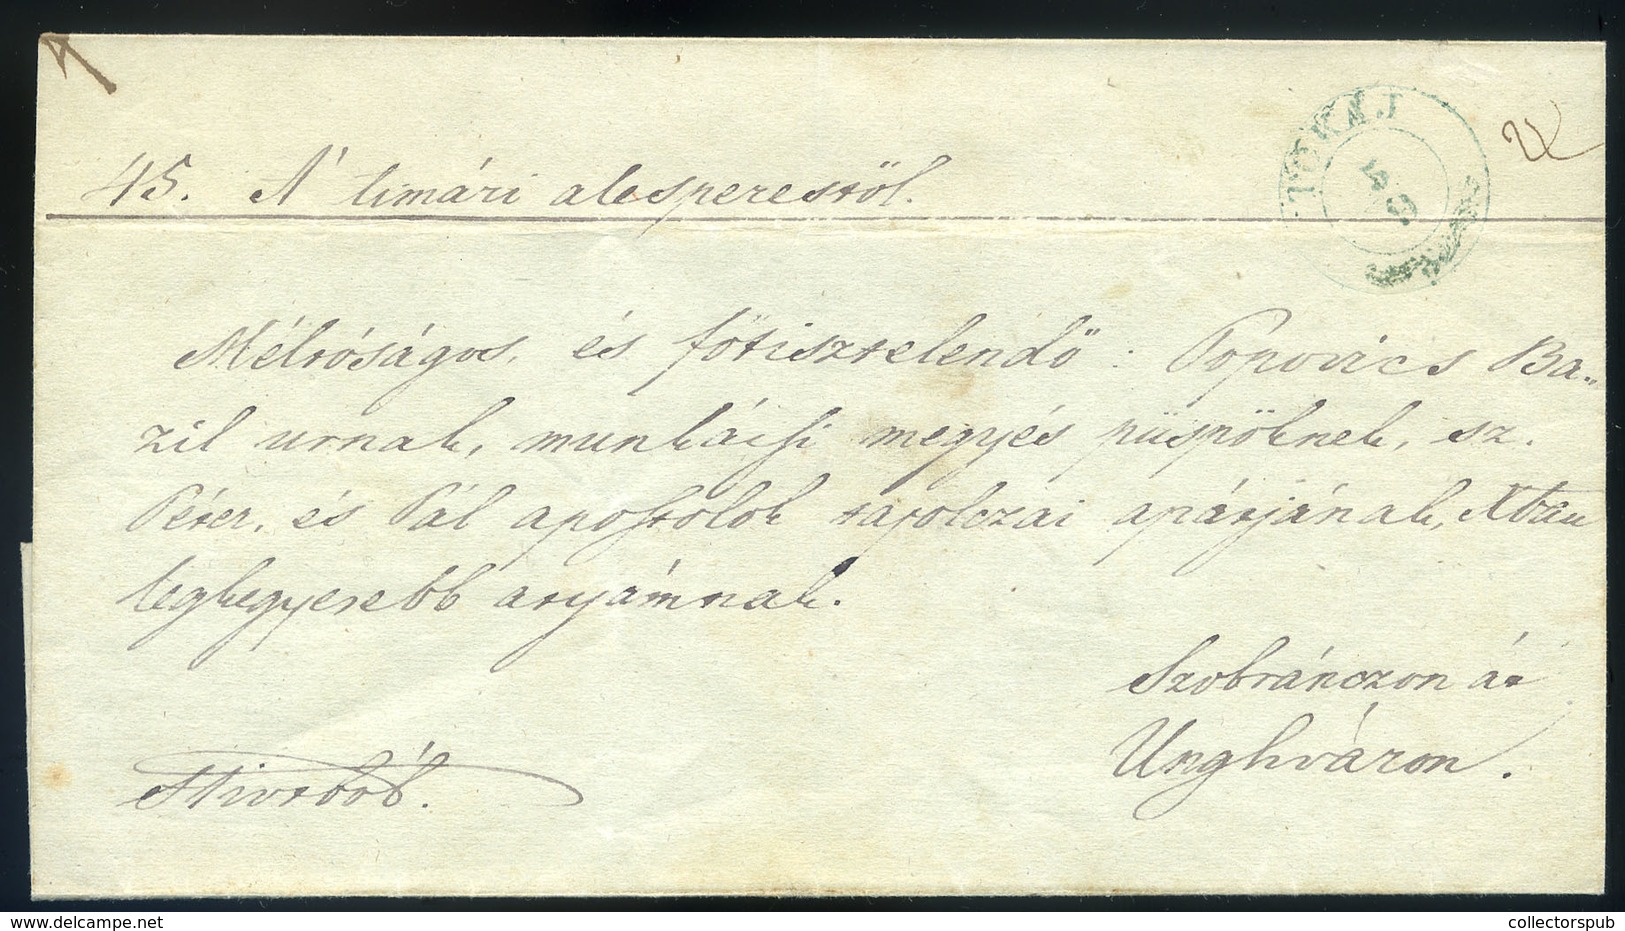 45. A' timári alesperestöl.
TOKAJ
5/9
Méltóságos, és főtisztelendő: Popovics Ba„
zil urnak, munkácsi megyés püspöknek, sz.
Péter, és Pál apostolok tapolczai apátjának,
legkegyesebb atyámnak.
Szobránczon át
Unghváron.
Hivatból.
collectorspub